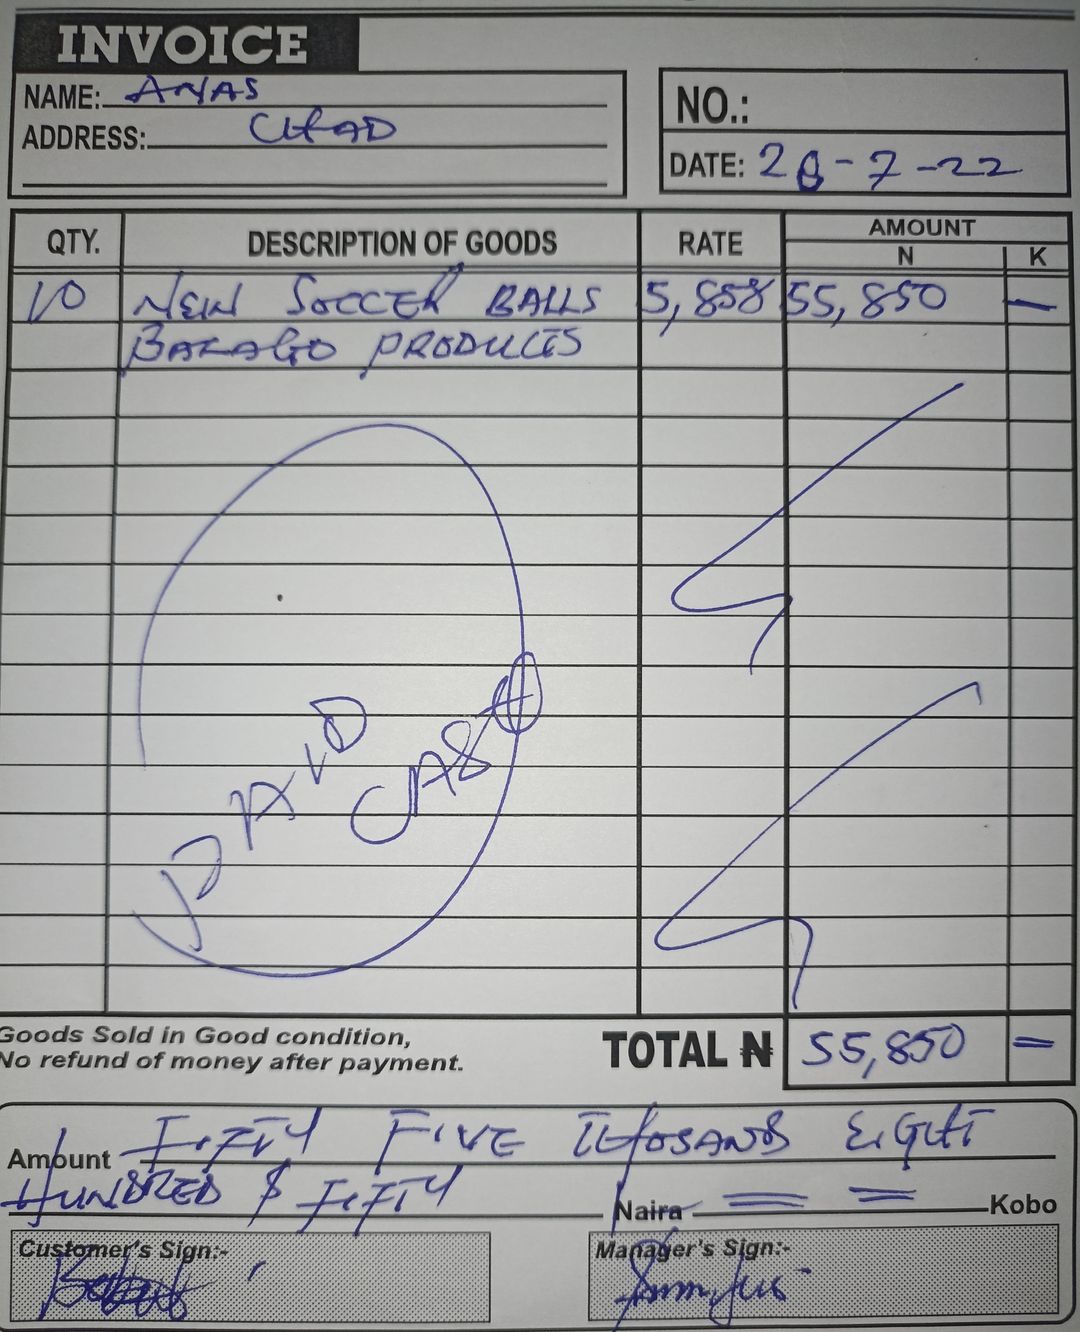 INVOICE
NAME: ANAS
ADDRESS: CHAD
NO.:
DATE: 28-7-22
QTY. DESCRIPTION OF GOODS RATE AMOUNT
N K
10 NEW SOCCER BALLS 5,858 55,850 —
PRODUCTS
PAID
CASH
Goods Sold in Good condition,
No refund of money after payment.
TOTAL ₦ 55,850 =
Amount FIFTY FIVE THOSAND EIGHT
HUNDRED $ FIFTY Naira = = Kobo
Customer's Sign:-
Manager's Sign:-